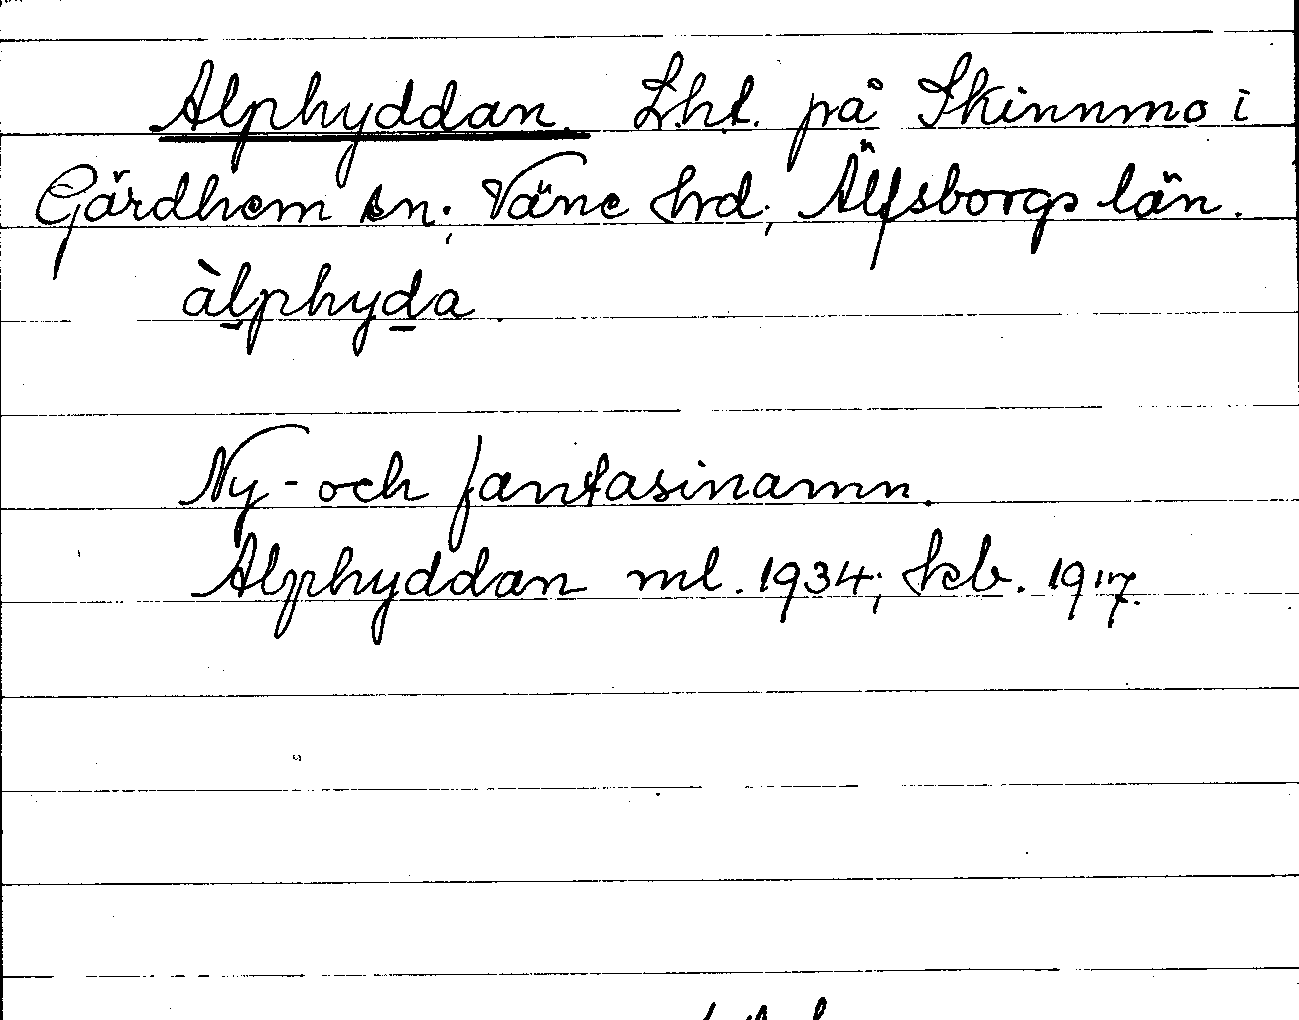 Alphyddan. Lht. på Skinnmo i
Gärdhem sn; Väne hrd; Älfsborgs län.
àlphyda.
Ny- och fantasinamn.
Alphyddan ml. 1934; kb. 1917.